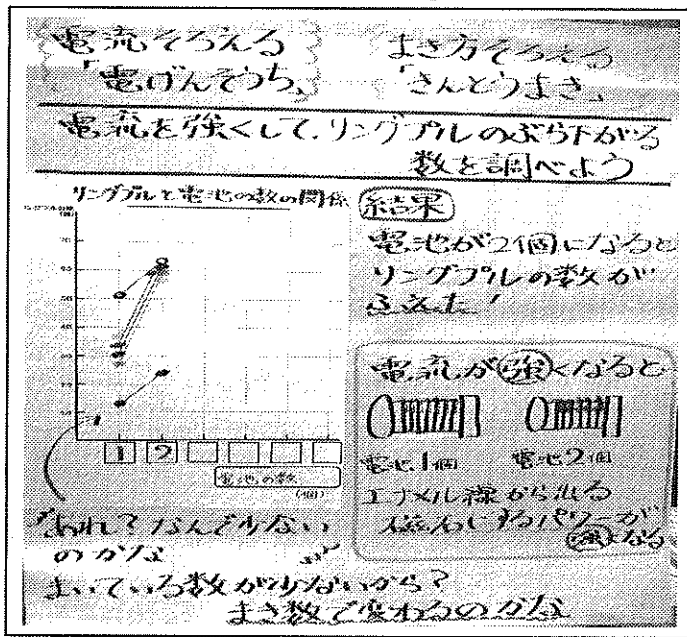 電流そろえる
「電げんそうち」
まき方そろえる
「きんとうまき」
電流を強くして、リングプルのぶら下がる
数を調べよう
リングプルと電池の数の関係
1
2
電池の数
(個)
結果
電池が2個になると
リングプルの数が
ふえた!
電流が強くなると
電池1個
電池2個
エナメル線から出る
磁石にするパワーが
強くなる
あれ?なんで少ない
のかな
まいている数が少ないから?
まき数で変わるのかな